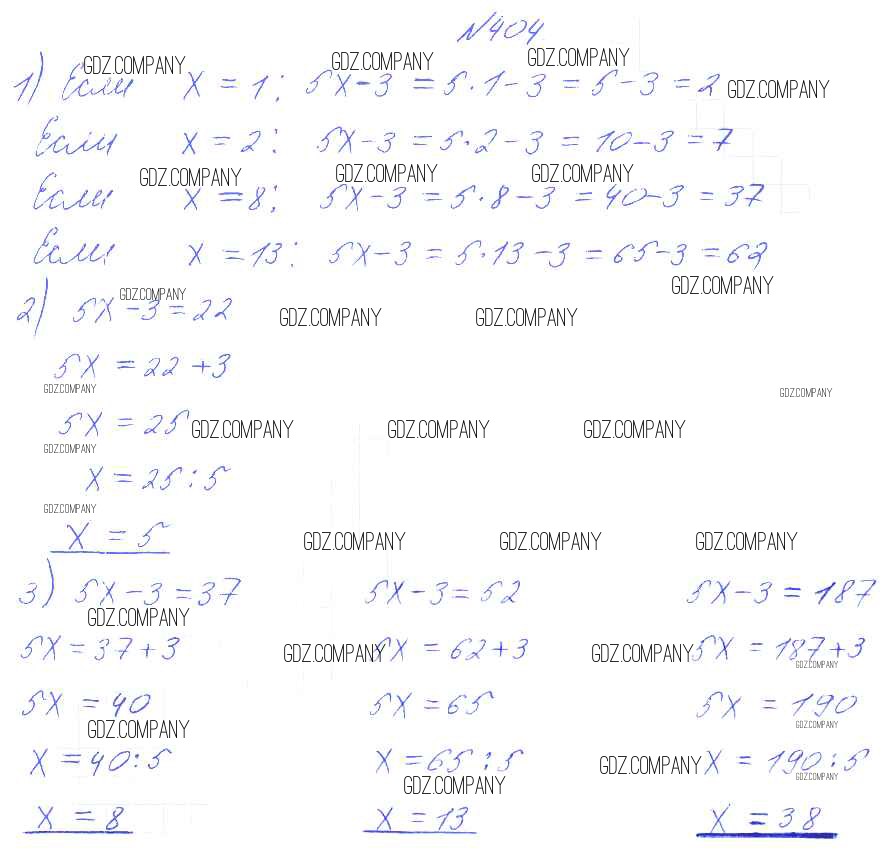 №404
GDZ.COMPANY GDZ.COMPANY GDZ.COMPANY
1) Если x = 1: 5x-3 = 5·1-3 = 5-3 = 2 GDZ.COMPANY
Если x = 2: 5x-3 = 5·2-3 = 10-3 = 7
GDZ.COMPANY GDZ.COMPANY GDZ.COMPANY
Если x = 8: 5x-3 = 5·8-3 = 40-3 = 37
Если x = 13: 5x-3 = 5·13-3 = 65-3 = 62
GDZ.COMPANY
GDZ.COMPANY
2) 5x-3 = 22 GDZ.COMPANY GDZ.COMPANY
5x = 22+3
GDZ.COMPANY GDZ.COMPANY
5x = 25 GDZ.COMPANY GDZ.COMPANY GDZ.COMPANY
GDZ.COMPANY
x = 25:5
GDZ.COMPANY
x = 5 GDZ.COMPANY GDZ.COMPANY GDZ.COMPANY
3) 5x-3 = 37 5x-3 = 52 5x-3 = 187
GDZ.COMPANY
5x = 37+3 GDZ.COMPANY 5x = 62+3 GDZ.COMPANY 5x = 187+3
GDZ.COMPANY
5x = 40 5x = 65 5x = 190
GDZ.COMPANY GDZ.COMPANY
x = 40:5 x = 65:5 GDZ.COMPANY x = 190:5
GDZ.COMPANY GDZ.COMPANY
x = 8 x = 13 x = 38